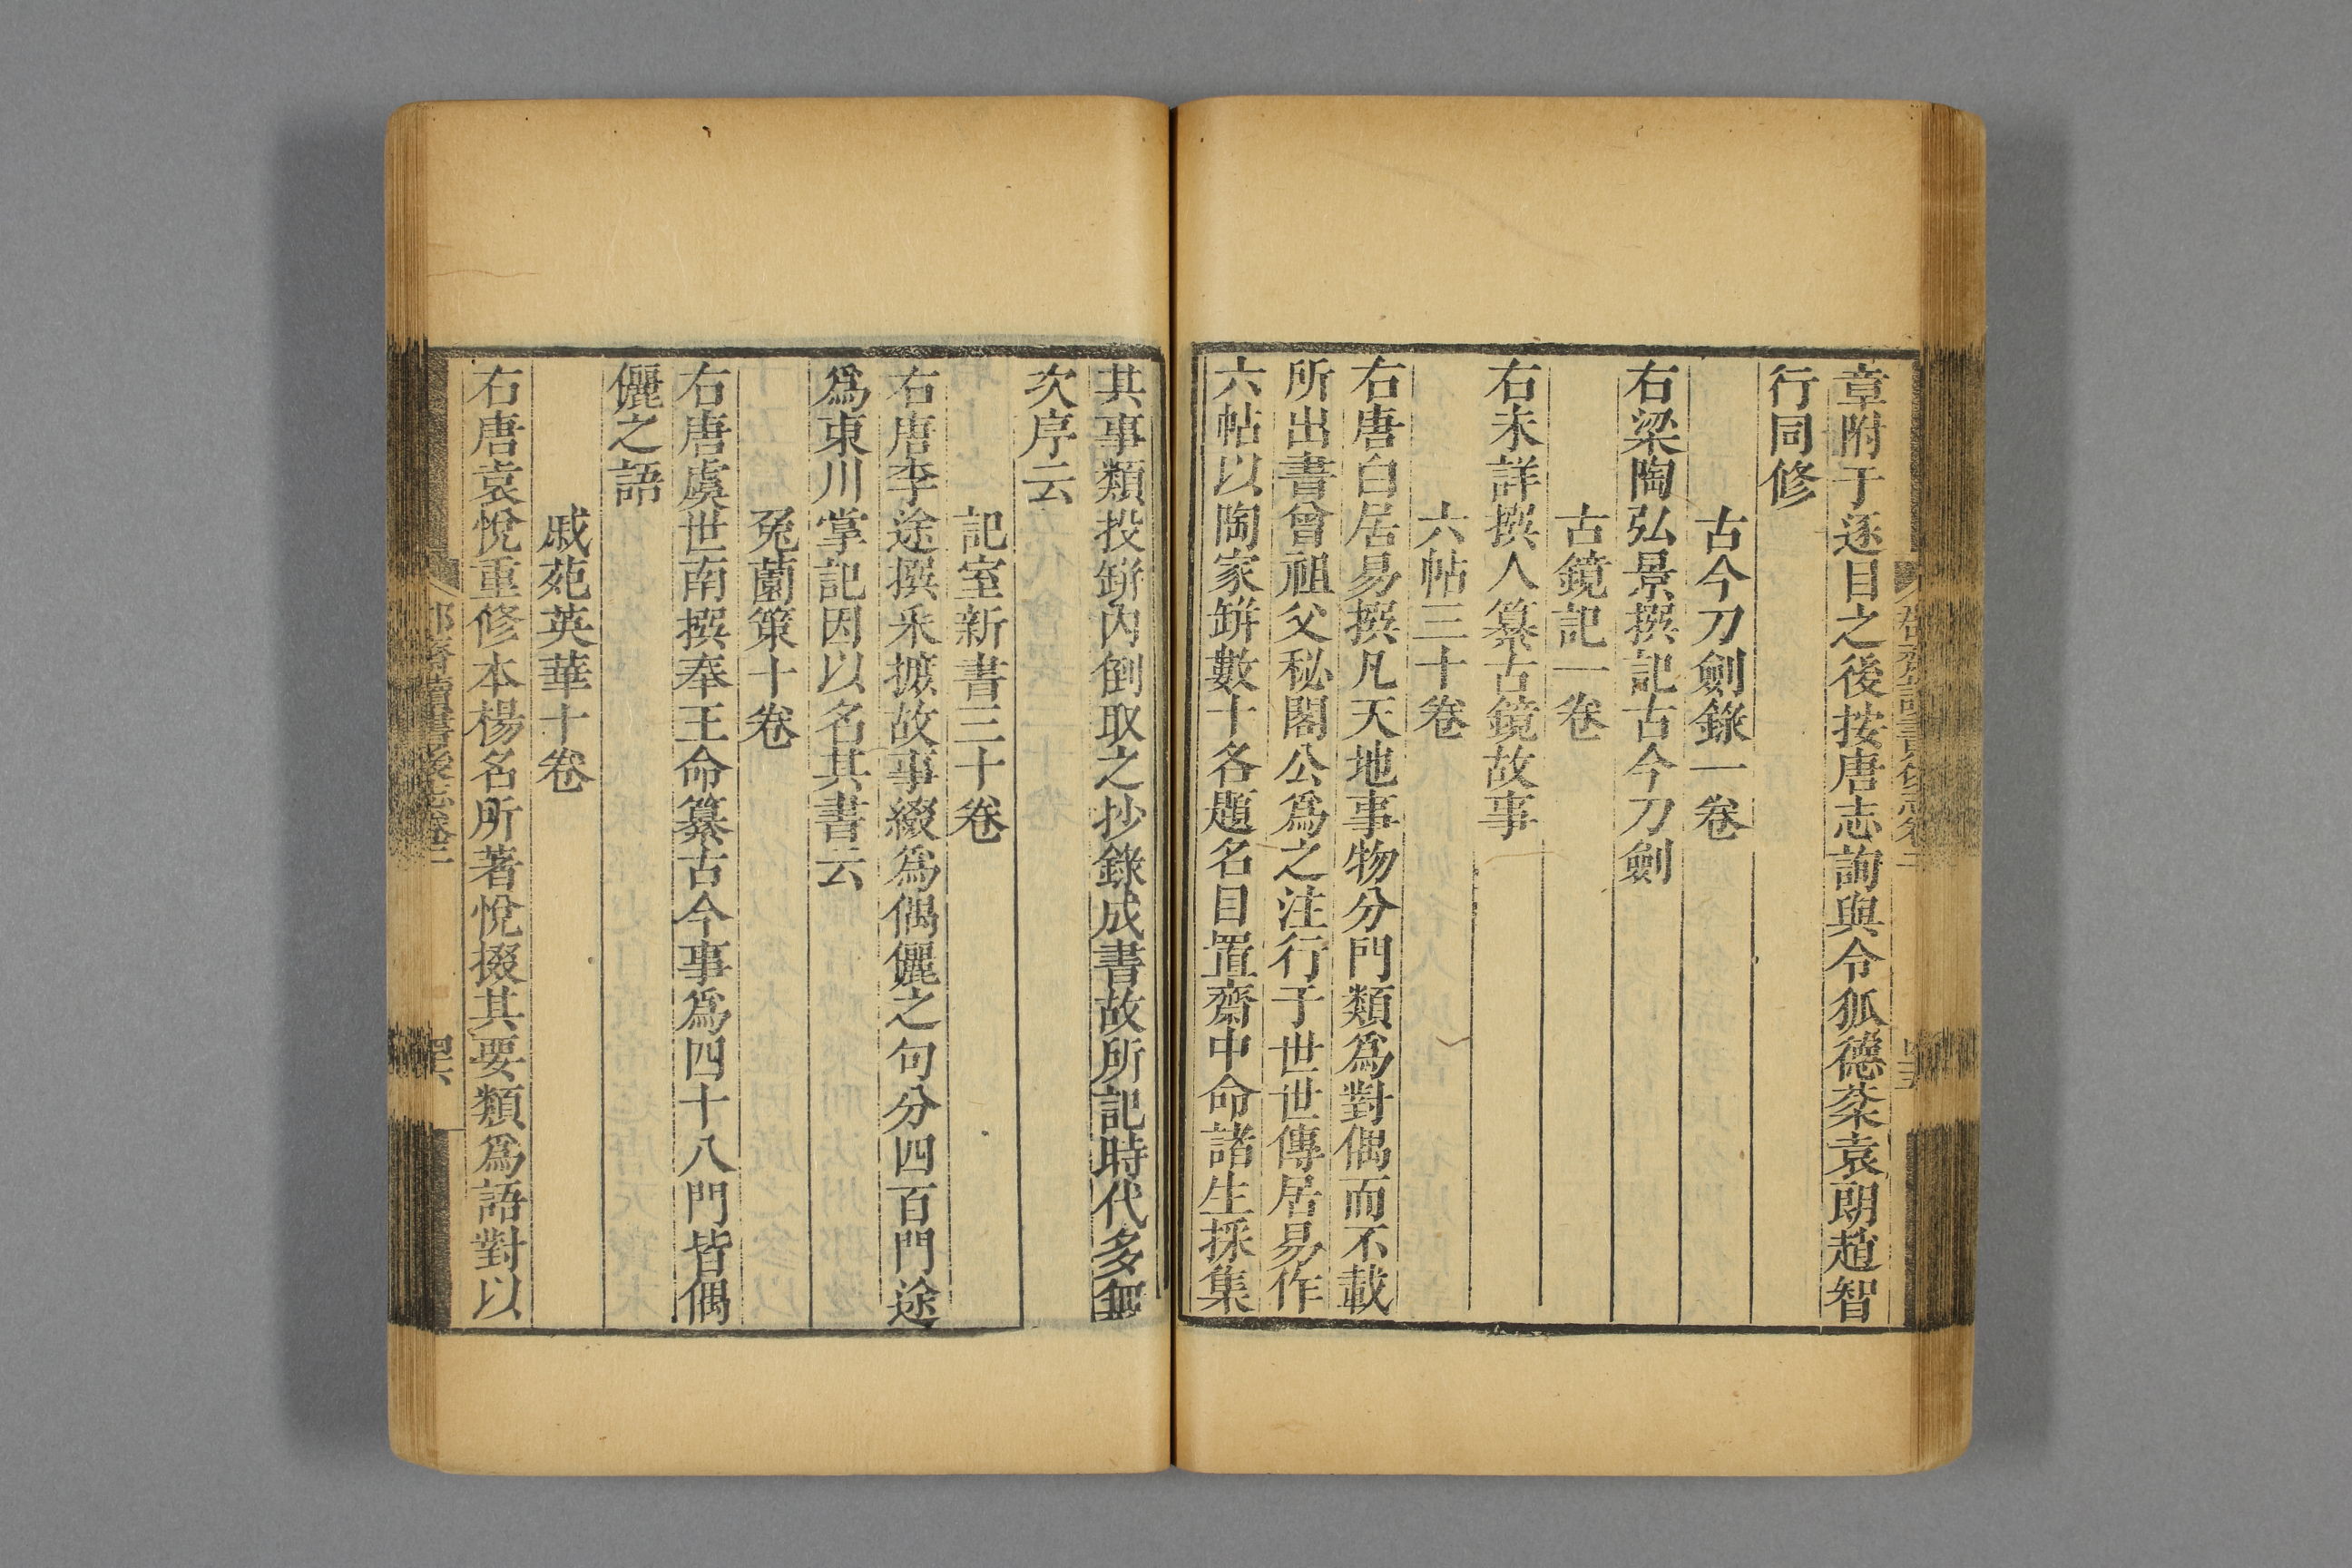 章附于逐目之後按唐志詢與令狐德棻袁朗趙智
行同修
古今刀劍錄一卷
右梁陶弘景撰記古今刀劍
古鏡記一卷
右未詳撰人纂古鏡故事
六帖三十卷
右唐白居易撰凡天地事物分門類爲對偶而不載
所出書曾祖父秘閣公爲之注行于世世傳居易作
六帖以陶家缾數十各題名目置齋中命諸生採集
其事類投缾內倒取之抄錄成書故所記時代多無
次序云
記室新書三十卷
右唐李途撰采摭故事綴爲偶儷之句分四百門途
爲東川掌記因以名其書云
兔薗策十卷
右唐虞世南撰奉王命纂古今事爲四十八門皆偶
儷之語
戚苑英華十卷
右唐袁悅重修本楊名所著悅掇其要類爲語對以